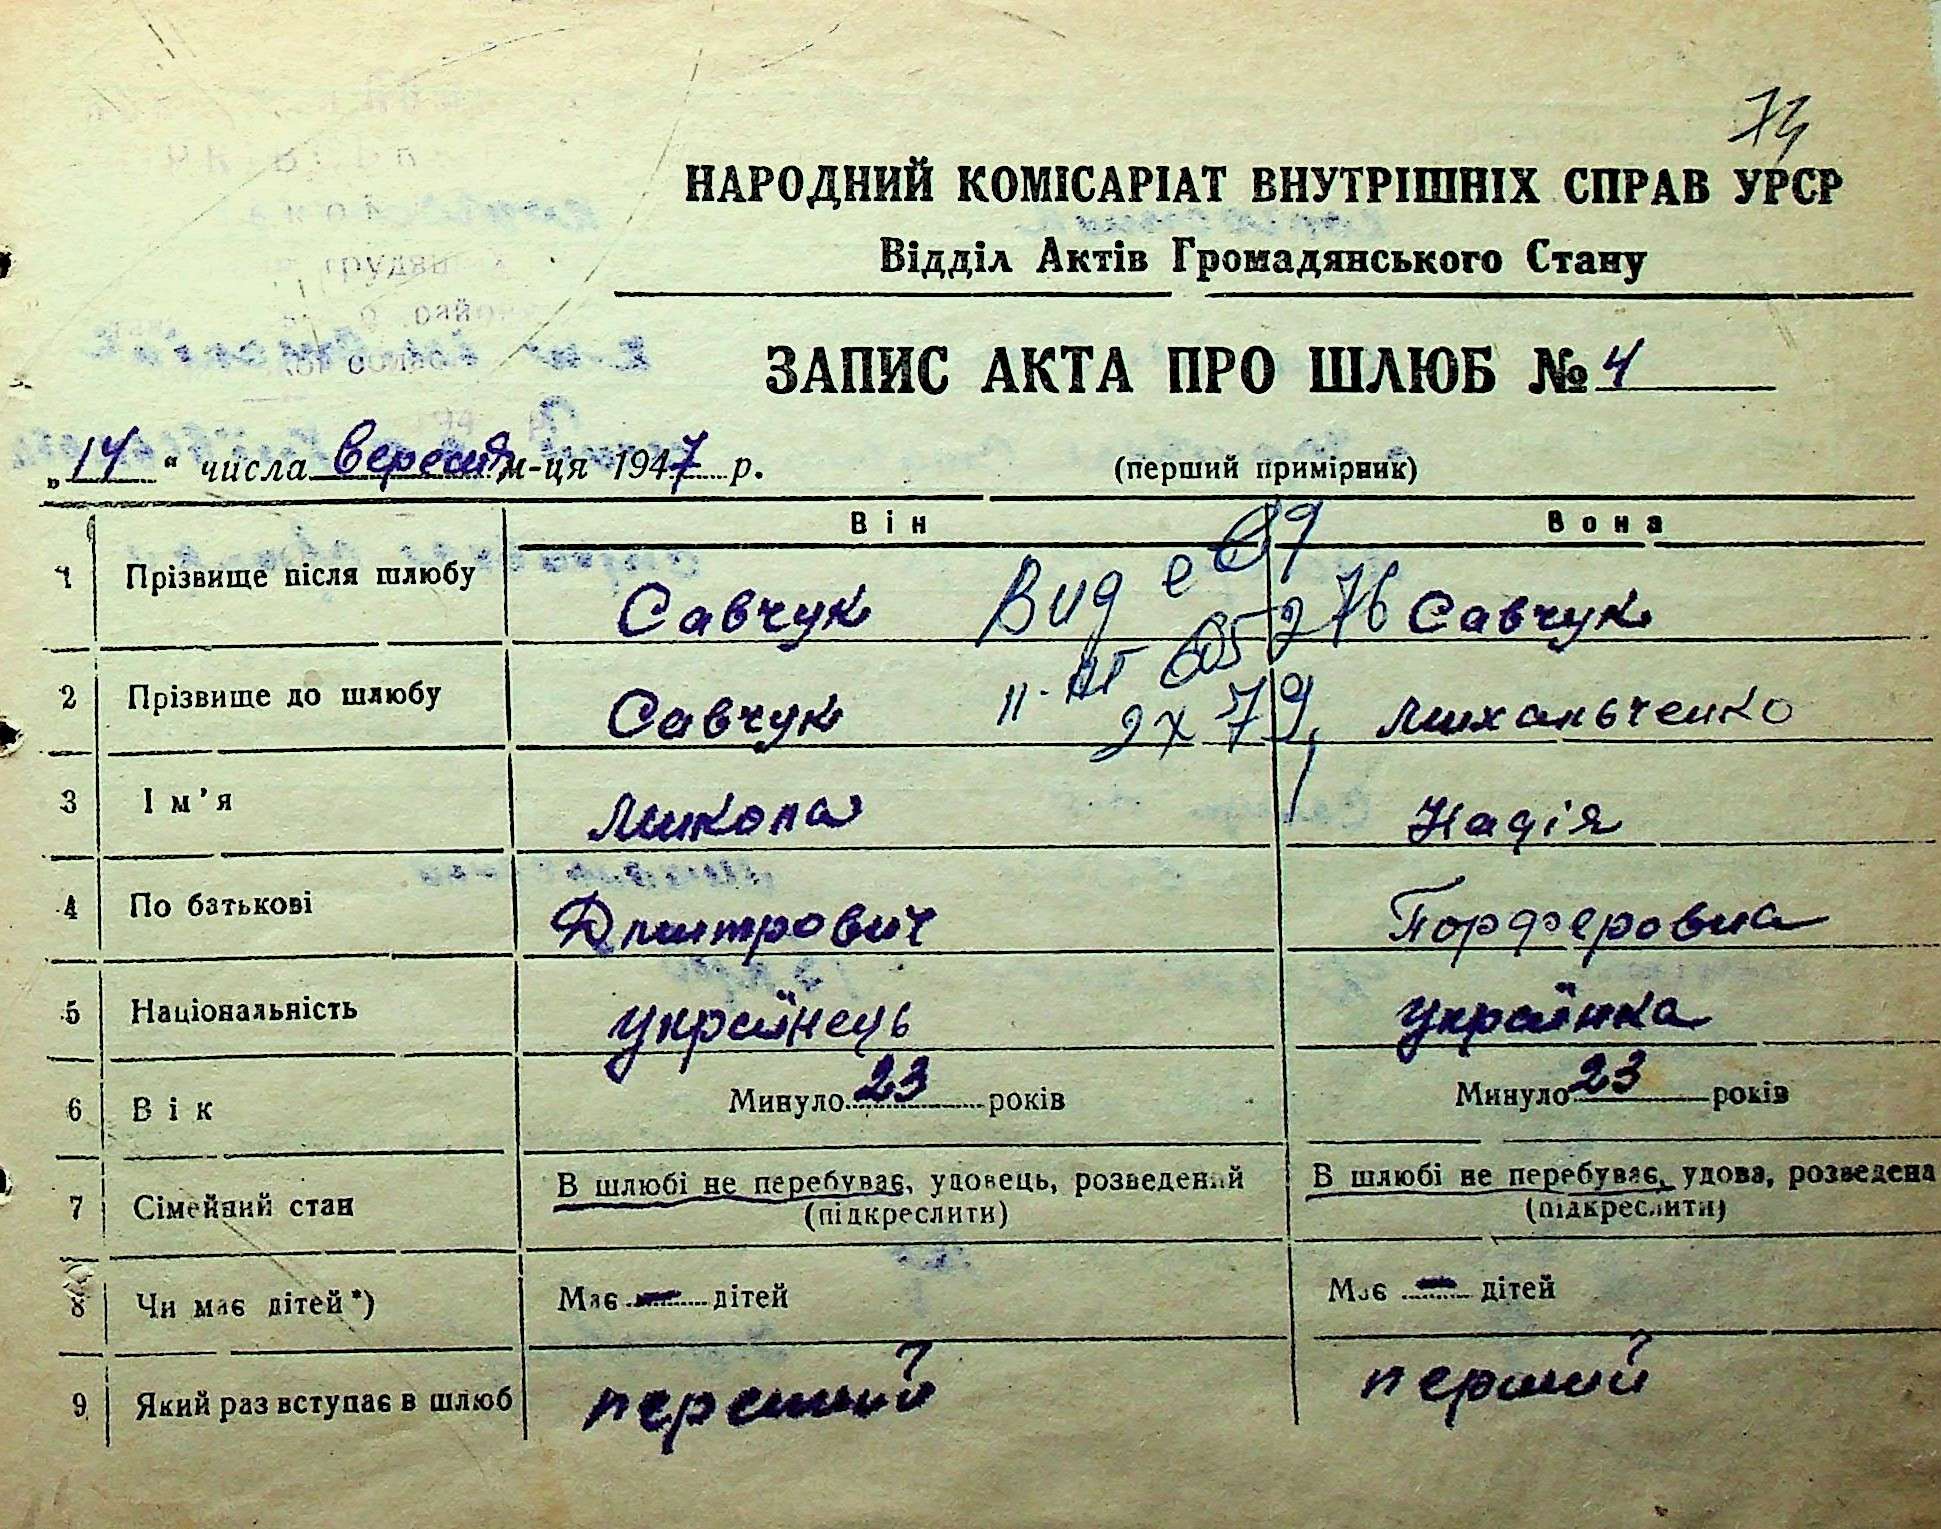 74
НАРОДНИЙ КОМІСАРІАТ ВНУТРІШНІХ СПРАВ УРСР
Відділ Актів Громадянського Стану
ЗАПИС АКТА ПРО ШЛЮБ № 4
„14“ числа вересня м-ця 1947 р. (перший примірник)
Він Вона
1 Прізвище після шлюбу Савчук Савчук
Вид
605276
2 Прізвище до шлюбу Савчук Михальченко
2 X 79
3 Ім’я Микола Надія
4 По батькові Дмитрович Порферовна
5 Національність українець українка
6 Вік Минуло 23 років Минуло 23 років
7 Сімейний стан В шлюбі не перебуває, удовець, розведений В шлюбі не перебуває, удова, розведена
(підкреслити) (підкреслити)
8 Чи має дітей*) Має — дітей Має — дітей
9 Який раз вступає в шлюб перший перший